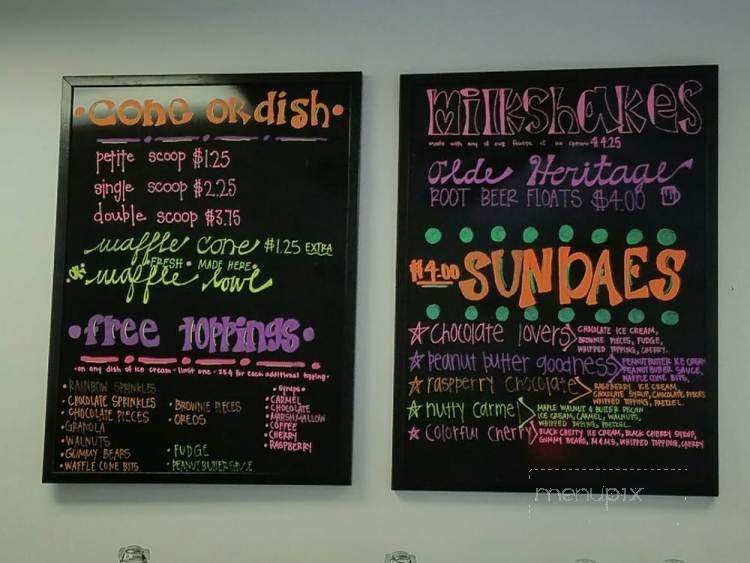 CONE OR DISH
petite scoop $1.25
single scoop $2.25
double scoop $3.75
waffle cone $1.25 EXTRA
FRESH • MADE HERE •
OR waffle bowl
• free TOPPINGS •
• on any dish of ice cream - limit one - 25¢ for each additional topping •
• RAINBOW SPRINKLES
• CHOCOLATE SPRINKLES
• CHOCOLATE PIECES
• GRANOLA
• WALNUTS
• GUMMY BEARS
• WAFFLE CONE BITS
• BROWNIE PIECES
• OREOS
• FUDGE
• PEANUT BUTTER SAUCE
• Syrups •
• CARAMEL
• CHOCOLATE
• MARSHMALLOW
• COFFEE
• CHERRY
• RASPBERRY
MILKSHAKES
made with any of our flavors of ice cream $4.25
Olde Heritage
ROOT BEER FLOATS $4.00
$4.00 SUNDAES
chocolate lovers
CHOCOLATE ICE CREAM,
BROWNIE PIECES, FUDGE,
WHIPPED TOPPING, CHERRY.
peanut butter goodness
PEANUT BUTTER ICE CREAM
PEANUT BUTTER SAUCE,
WAFFLE CONE BITS,
raspberry chocolate
RASPBERRY ICE CREAM,
CHOCOLATE SYRUP, CHOCOLATE PIECES
WHIPPED TOPPING, PRETZEL.
nutty carmel
MAPLE WALNUT & BUTTER PECAN
ICE CREAM, CARMEL, WALNUTS,
WHIPPED TOPPING, PRETZEL.
colorful cherry
BLACK CHERRY ICE CREAM, BLACK CHERRY SYRUP,
GUMMY BEARS, M&MS, WHIPPED TOPPING, CHERRY
menupix